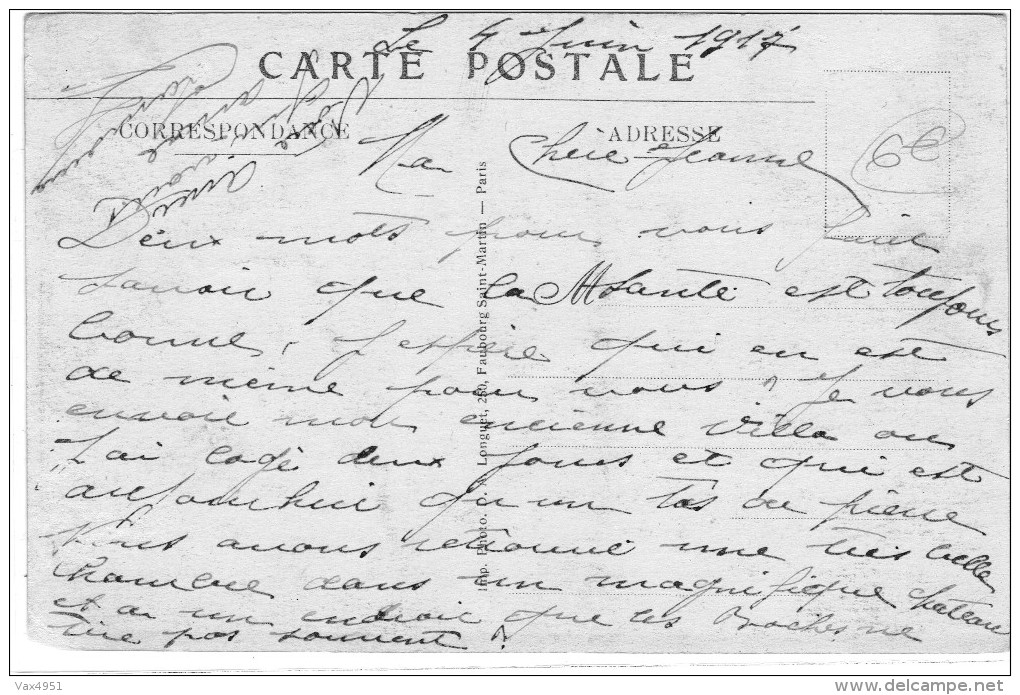 Le 4 Juin 1917
CARTE POSTALE
CORRESPONDANCE
ADRESSE
6€
Ma Chere Jeanne
Deux mots pour vous faire
savoir que la santé est toujours
bonne, J espère qui en est
de même pour vous, Je vous
envoie mon encienne villa ou
J'ai logé deux jours et qui est
aujourhui qu un tas de pierre
Nous avons retrouvé une très belle
chambre dans un magnifique chateau
et a un endroit que les Boches ne
tire pas souvent
Imp. Photo. C. A. Longuet, 250, Faubourg Saint-Martin — Paris
Vax4951
delcampe.net